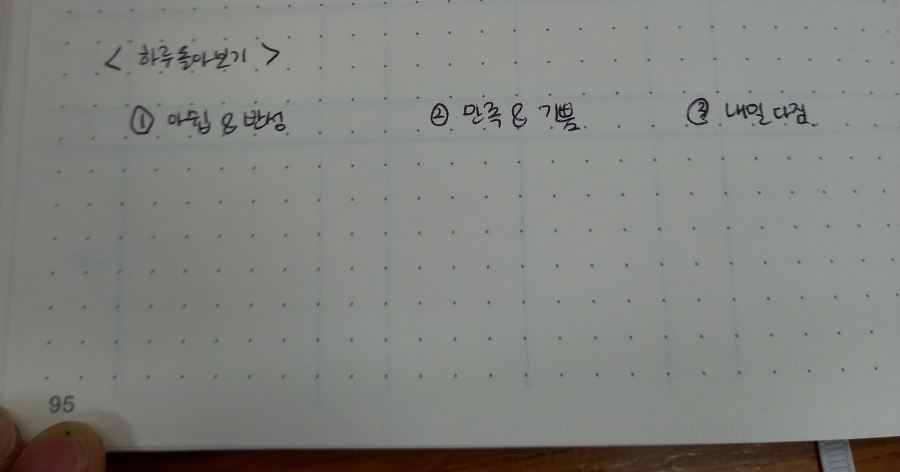 < 하루 돌아보기 >
① 아쉽 & 반성 ② 만족 & 기쁨 ③ 내일 다짐
95